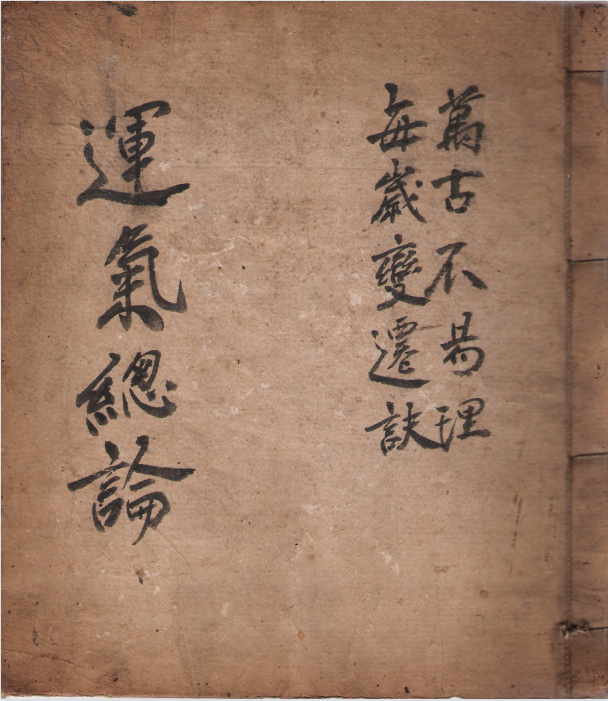 萬古不易理
每歲變遷訣
運氣總論